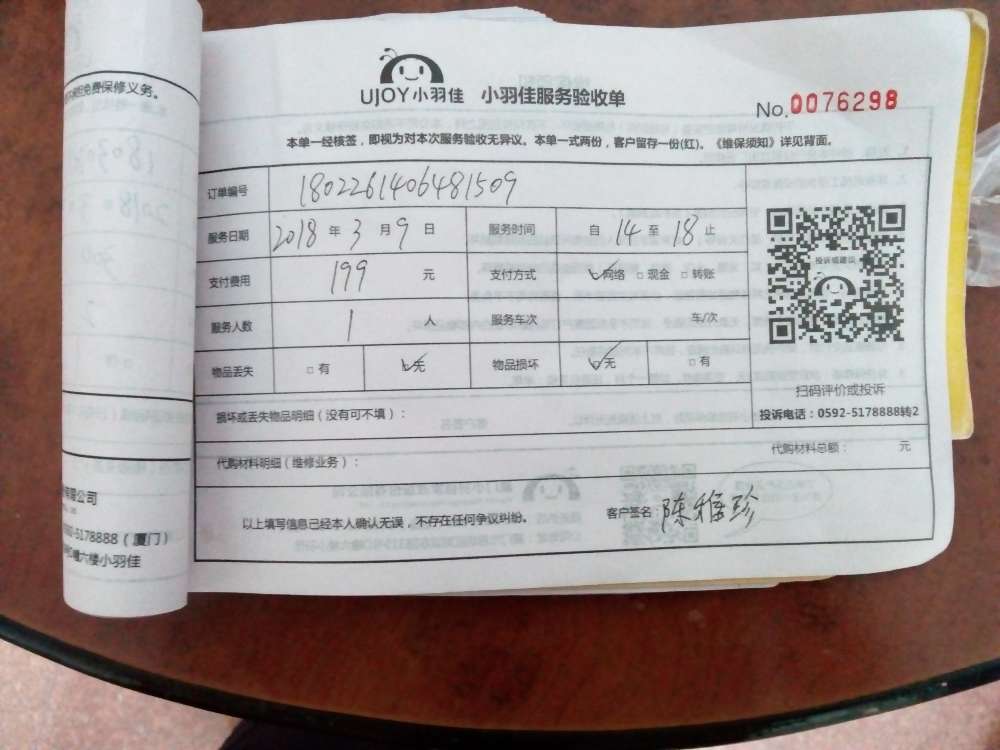 不承担免费保修义务。
UJOY小羽佳 小羽佳服务验收单
No.0076298
本单一经核签，即视为对本次服务验收无异议。本单一式两份，客户留存一份(红)。《维保须知》详见背面。
订单编号 1802261406481509
服务日期 2018 年 3 月 9 日 服务时间 自 14 至 18 止
支付费用 199 元 支付方式 ☑网络 □现金 □转账
服务人数 1 人 服务车次 车/次
物品丢失 □有 ☑无 物品损坏 ☑无 □有
投诉或建议
扫码评价或投诉
投诉电话：0592-5178888转2
损坏或丢失物品明细（没有可不填）：
代购材料明细（维修业务）： 代购材料总额： 元
以上填写信息已经本人确认无误，不存在任何争议纠纷。 客户签名：陈雅珍
有限公司
-5178888（厦门）
幢六楼小羽佳